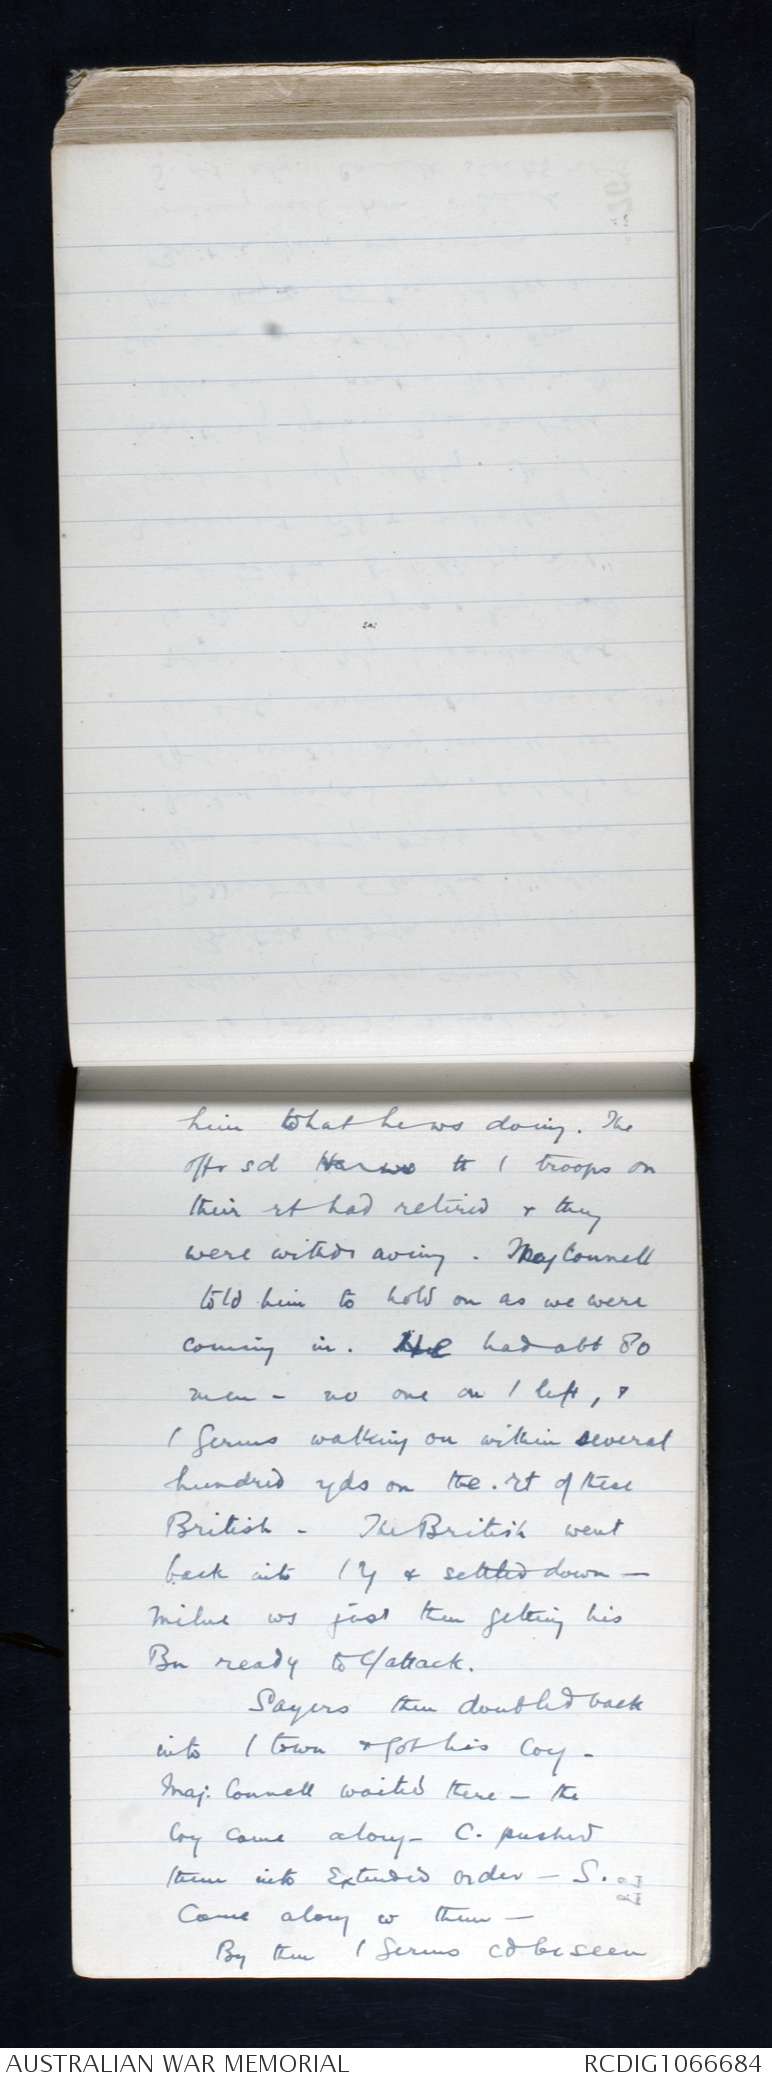 him what he ws doing. The
offr sd tt / troops on
their rt had retired & they
were withdrawing. Maj Connell
told him to hold on as we were
coming in. He had abt 80
men - no one on / left, &
/ Germs walking on within several
hundred yds on the rt of these
British - The British went
back into / & settled down —
Milne ws just then getting his
Bn ready to C/attack.
Sayers then doubled back
into / town & got his Coy -
Maj. Connell waited there — the
Coy came along - C. pushed
them into Extended order — S.
Came along w them —
By then / Germs cd be seen
AUSTRALIAN WAR MEMORIAL
RCDIG1066684